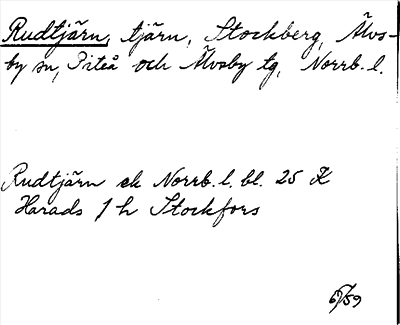 Rudtjärn, tjärn, Stockberg, Älvs-
by sn, Piteå och Älvsby tg, Norrb. l.
Rudtjärn ek Norrb. l. bl. 25 K
Harads 1 h Stockfors
6/59